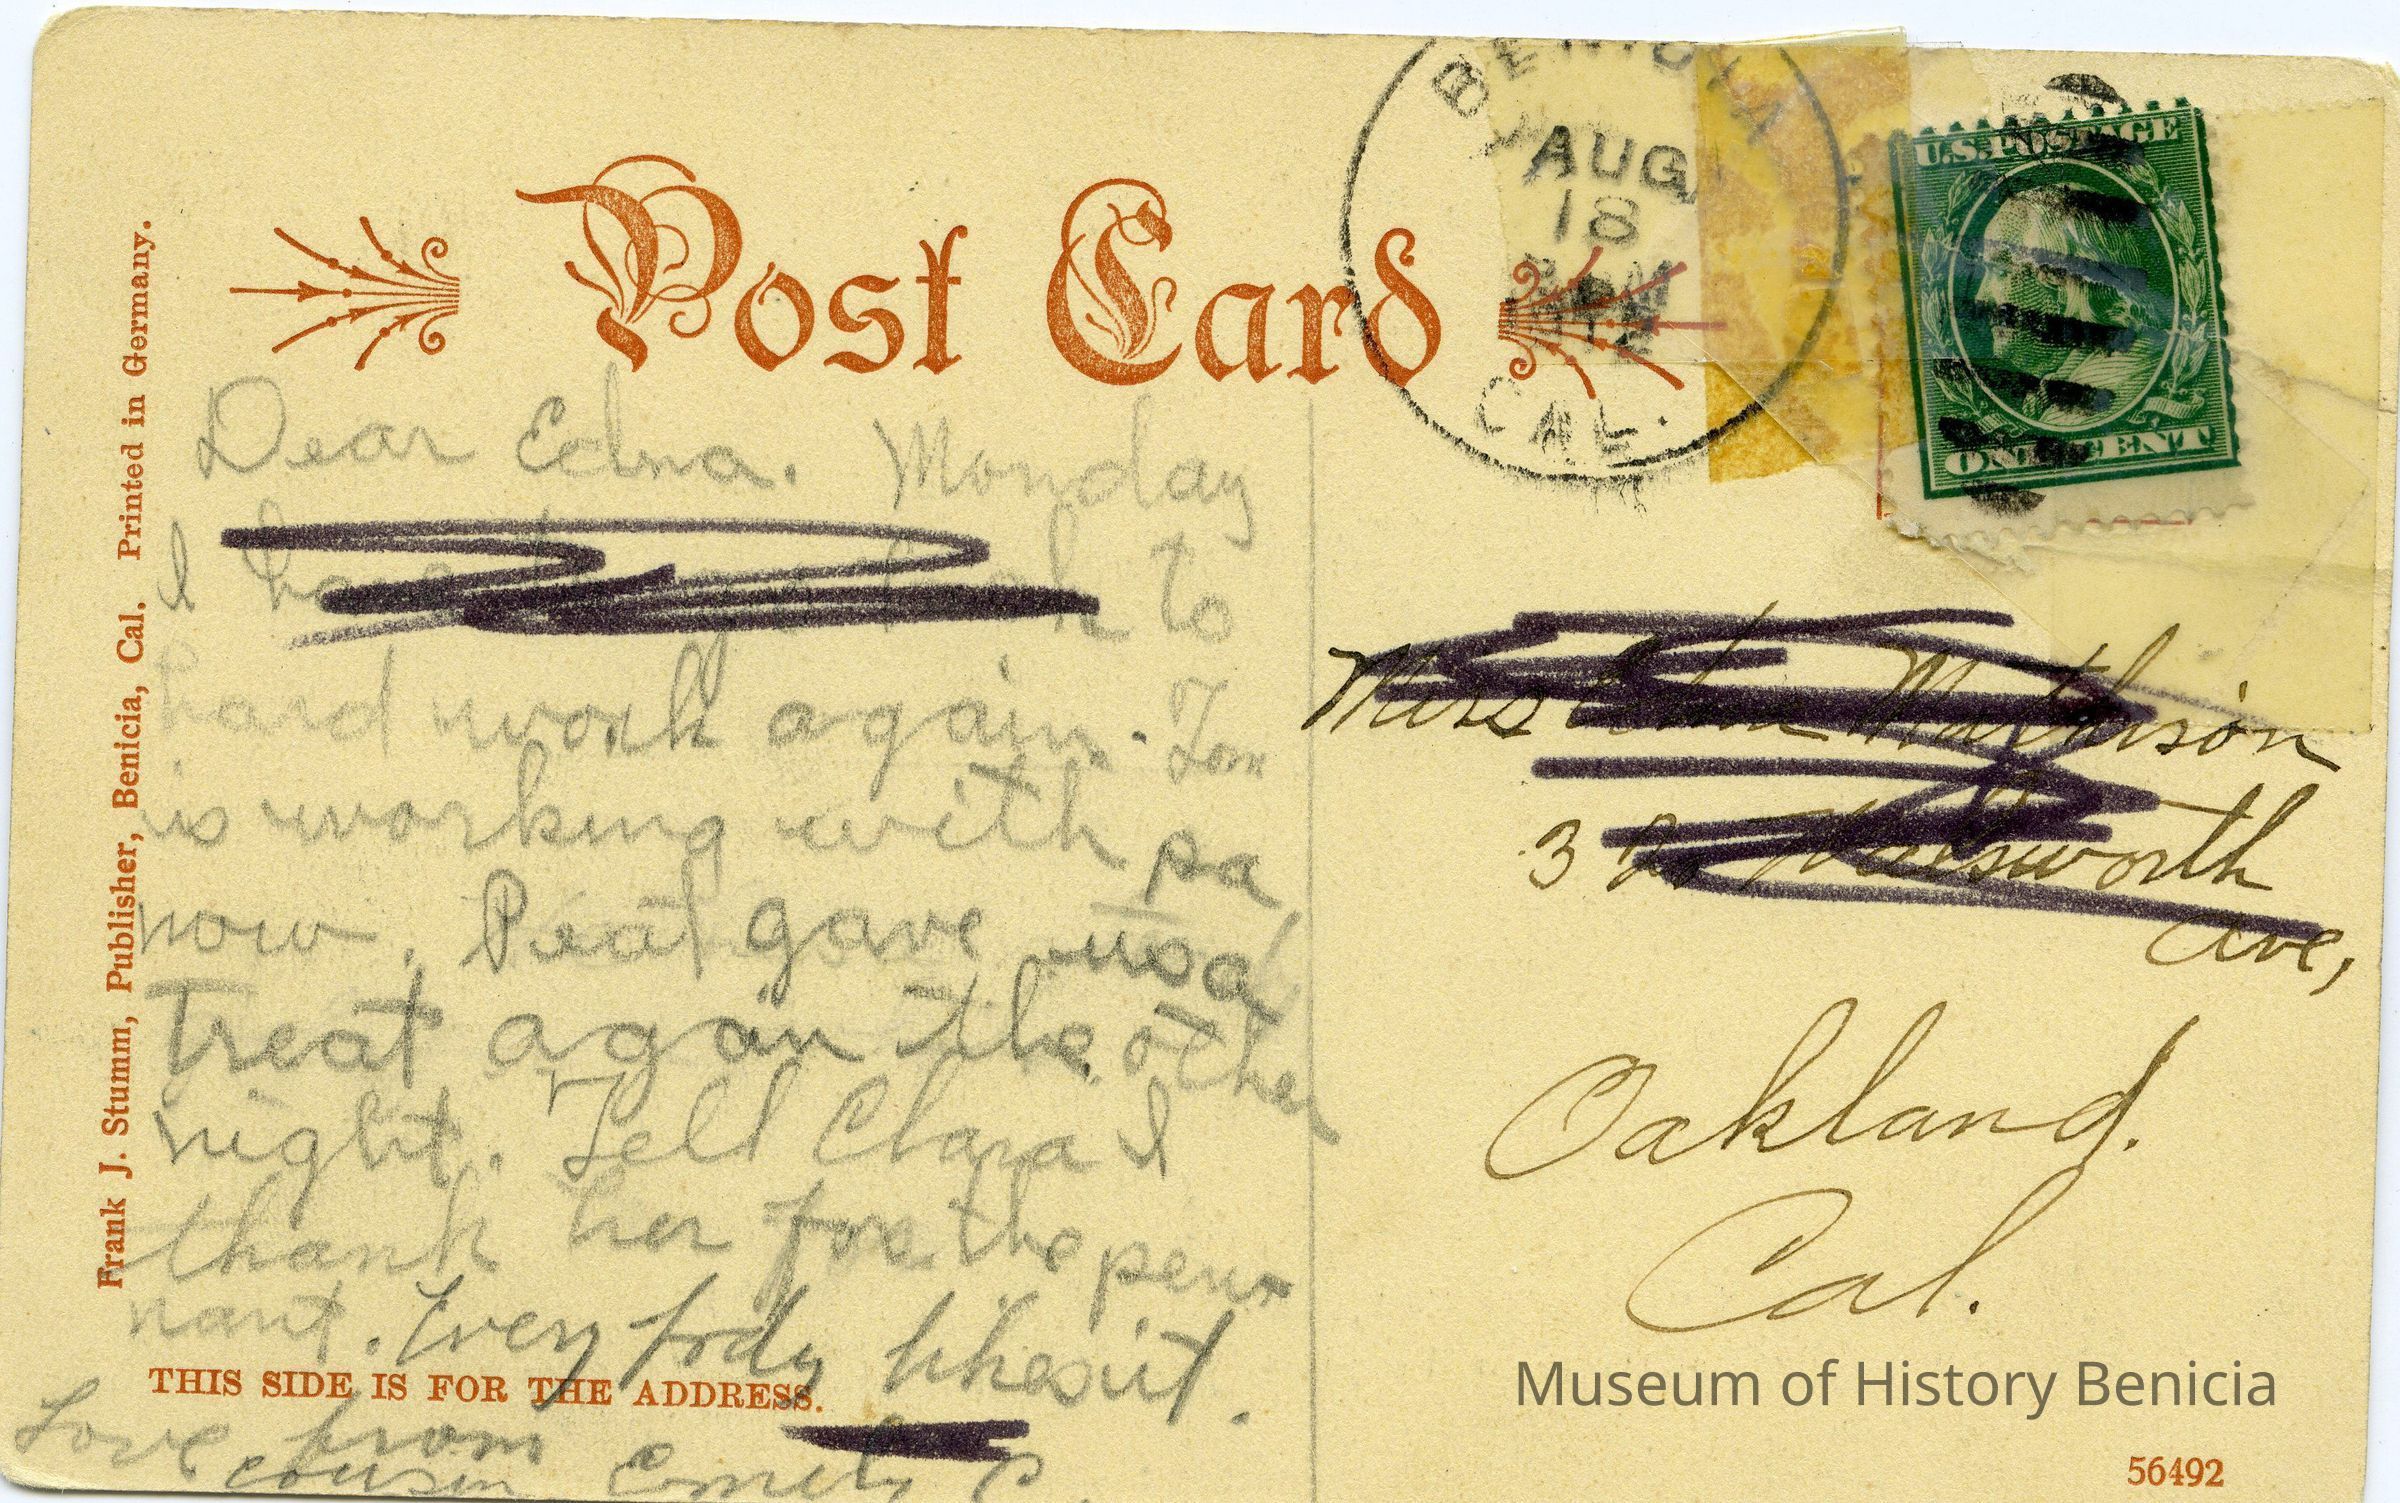 BENICIA
AUG
18
CAL.
U.S. POSTAGE
ONE CENT
Post Card
Frank J. Stumm, Publisher, Benicia, Cal. Printed in Germany.
Dear Edna. Monday
I have to go back to
hard work again. Tom
is working with pa
now. Peat gave us a
treat again the other
night. Tell Clara I
thank her for the pen-
nant. Every body likes it.
THIS SIDE IS FOR THE ADDRESS.
Love from
cousin Emily P.
Miss Edna Mathison
Ave,
Oakland.
Cal.
Museum of History Benicia
56492